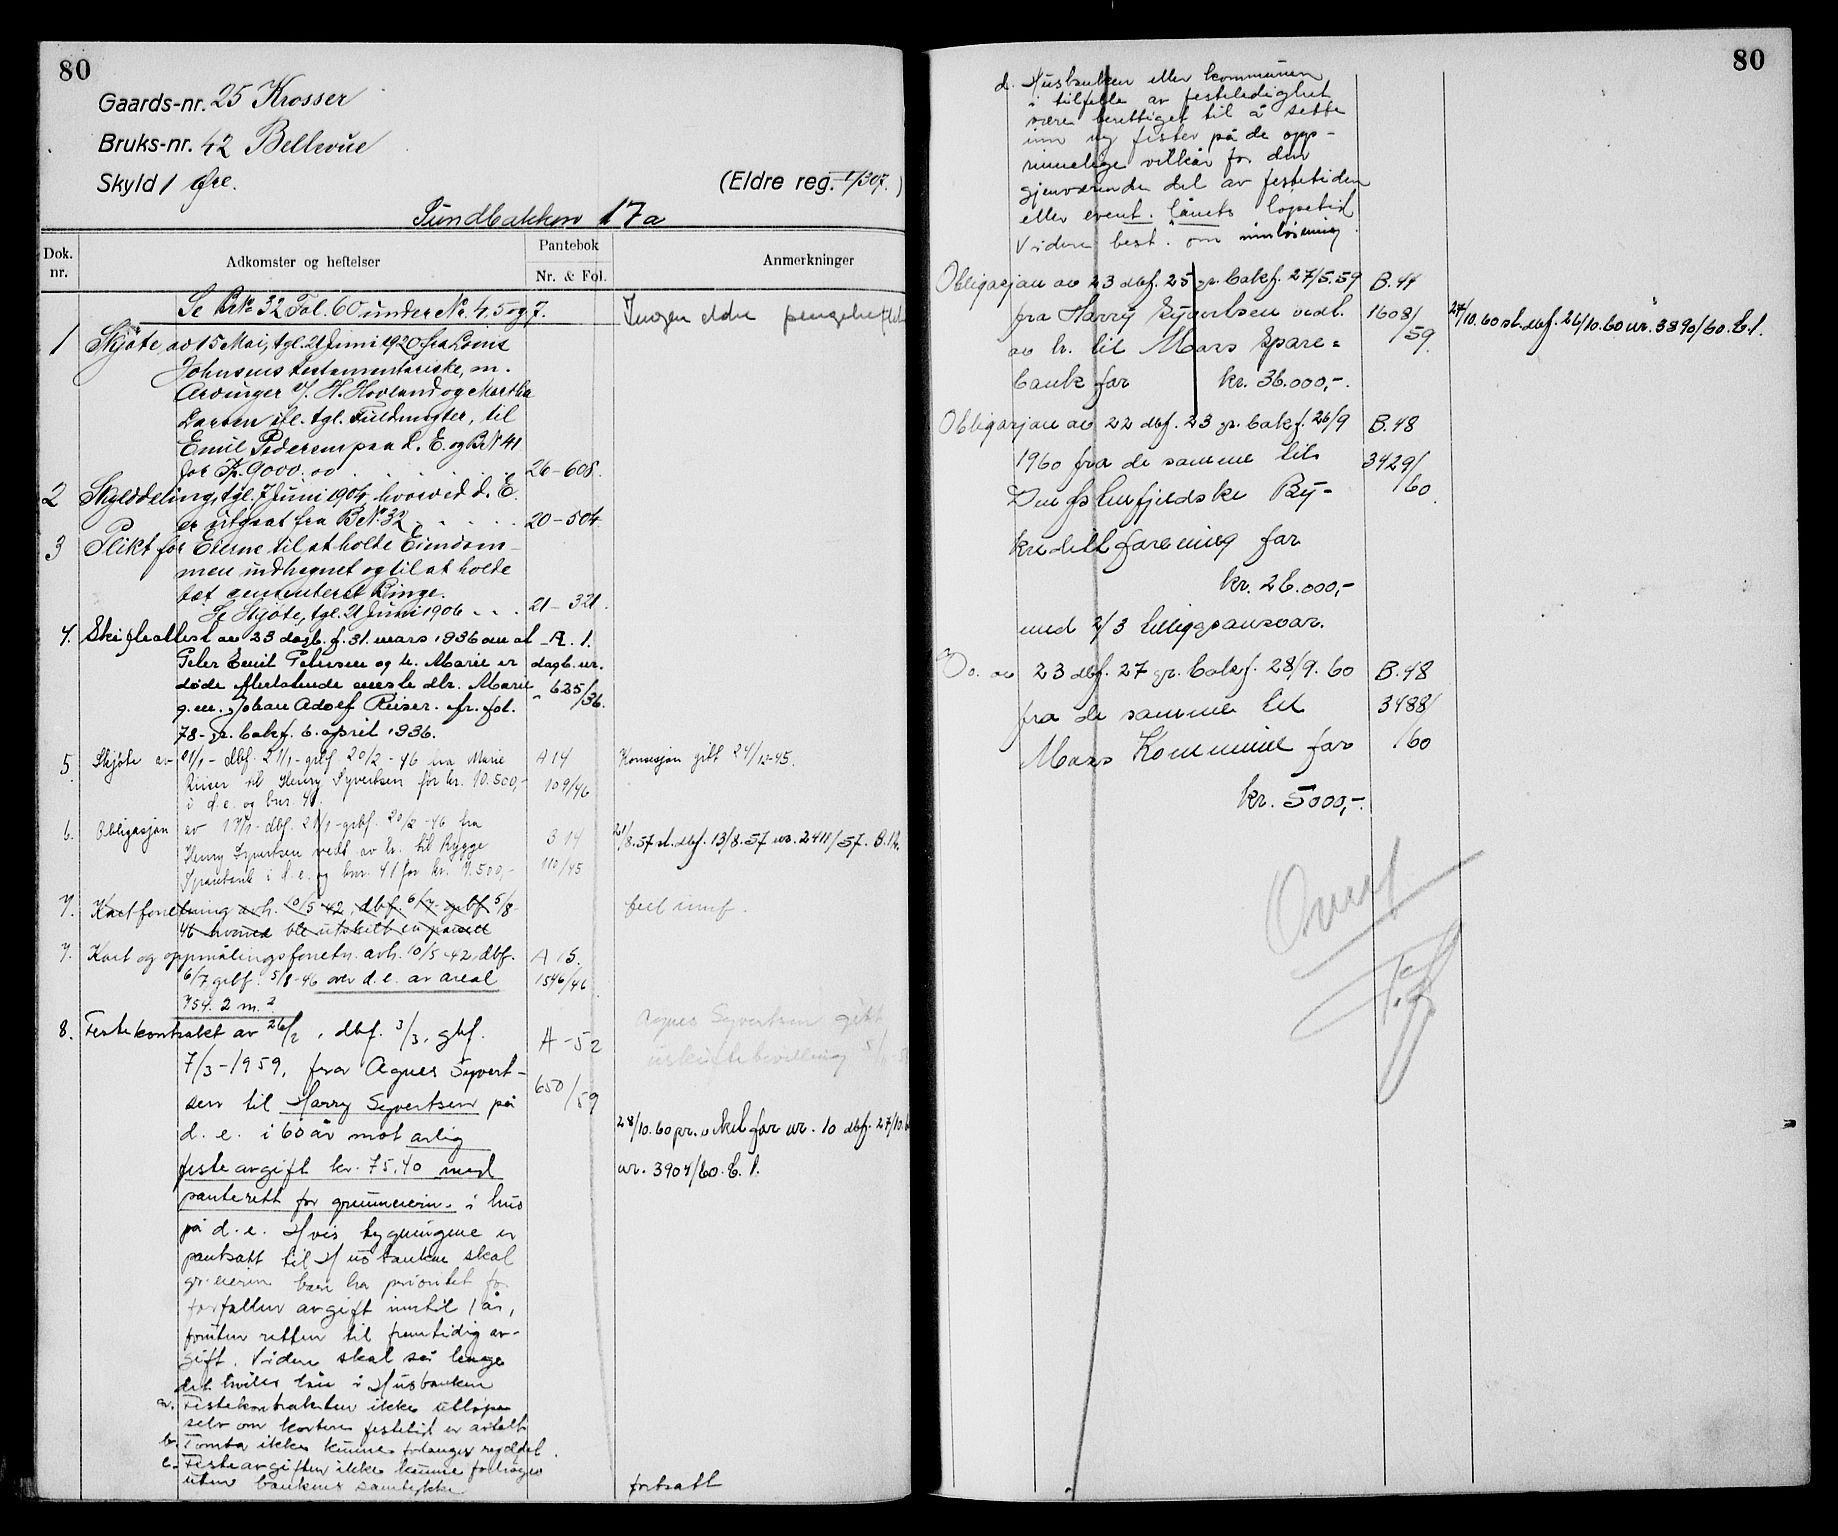 80
Gaards-nr. 25 Krosser
Bruks-nr. 42 Bellevue
Skyld 1 Øre.
(Eldre reg. I/307.)
Sundbakken 17a
Dok. nr.
Adkomster og heftelser
Pantebok
Nr. & Fol.
Anmerkninger
Se BrNo 32 Fol. 60 under No. 4, 5 og 7.
Ingen eldre pengeheftelser
1 Skjøte av 15 Mai, tgl. 21 Juni 1920 fra
Johnsens testamentariske, m.
Arvinger v/. H. Hovland og Martha
Larsen ifl. tgl. Fuldmagter, til
Emil Pedersen paa d. E. og BNo 41
for Kr. 9000.00 26-608.
2 Skylddeling, tgl. 7 Juni 1904, hvorved d. E.
er utgaat fra BNo 32 20-504
3 Plikt for Eierne til at holde Eiendom-
men indhegnet og til at holde
tæt cementeret Binge.
Se Skjøte, tgl. 21 Juni 1906 21-321.
4. Skifteattest av 23 dagb. f. 31. mars 1936 om at A. 1.
Peter Emil Petersen og h. Marie er dagb. nr.
døde etterlatende eneste dtr. Marie 625/36.
g.m. Johan Adolf Riiser. fr. fol.
78- gr. bokf. 6. april 1936.
5. Skjøte av 21/1- dbf. 21/1- grbf 20/2-46 fra Marie A 14
Riiser til Henry Syvertsen for kr. 10.500,- 109/46
i d.e. og bnr. 41.
Konsesjon gitt 24/12-45.
6. Obligasjon av 17/1- dbf. 21/1- grbf. 20/2-46 fra
Henry Syvertsen vedt. av h. til Rygge B 14
Sparebank i d.e. og bnr. 41 for kr. 9.500,- 110/45
21/8.57 sl. dbf. 13/8.57 nr. 2411/57. B.12.
7. Kartforretning avh. 10/5-42, dbf. 6/7- grbf 5/8-
46 hvorved ble utskilt en parsell
feil innf.
7. Kart og oppmålingsforretn. avh. 10/5-42, dbf. A 15.
6/7 grbf. 5/8-46 over d.e. av areal 1546/46
754.2 m.2
8. Festekontrakt av 26/2, dbf. 3/3, gbf. A-52
7/3-1959, fra Agnes Syvert- 650/59
sen til Harry Syvertsen på
d.e. i 60 år mot årlig
festeavgift kr. 75.40 med
panterett for grunneieren i hus
på d.e. Hvis bygningene er
pantsatt til Husbanken skal
gr.eieren bare ha prioritet for
forfallen avgift inntil 1 år,
foruten retten til fremtidig av-
gift. Videre skal så lenge
det hviler lån i Husbanken
a. Festekontrakten ikke utløpe
selv om kortere festetid er avtalt
b. Tomta ikke kunne forlanges ryddet.
c. Festeavgiften ikke kunne forhøyes
uten bankens samtykke
Agnes Syvertsen gitt
uskiftebevilling
28/10.60 pr. veket for nr. 10 dbf. 27/10.6
nr. 3904/60. B. 1.
fortsatt
80
d. Husbanken eller kommunen
i tilfelle av festeledighet
være berettiget til å sette
inn ny fester på de opp-
rinnelige vilkår for den
gjenværende del av festetiden
eller event. lånets løpetid
Videre best. om innløsning.
Obligasjon av 23 dbf. 25 gr. bokf. 27/5.59 B.44
fra Harry Syvertsen vedt. 1608/
av h. til Moss Spare= /59.
bank for kr. 36.000,-.
28/10.60 sl. dbf. 26/10.60 nr. 3890/60. B.1.
Obligasjon av 22 dbf. 23 gr. bokf. 26/9 B.48
1960 fra de samme til 3429/
Den Østenfjeldske By- /60.
kredittforening for
kr. 26.000,-
med 2/3 tilleggsansvar.
Do. av 23 dbf. 27 gr. bokf. 28/9.60 B.48
fra de samme til 3488/
Moss Kommune for /60
kr. 5000,-.